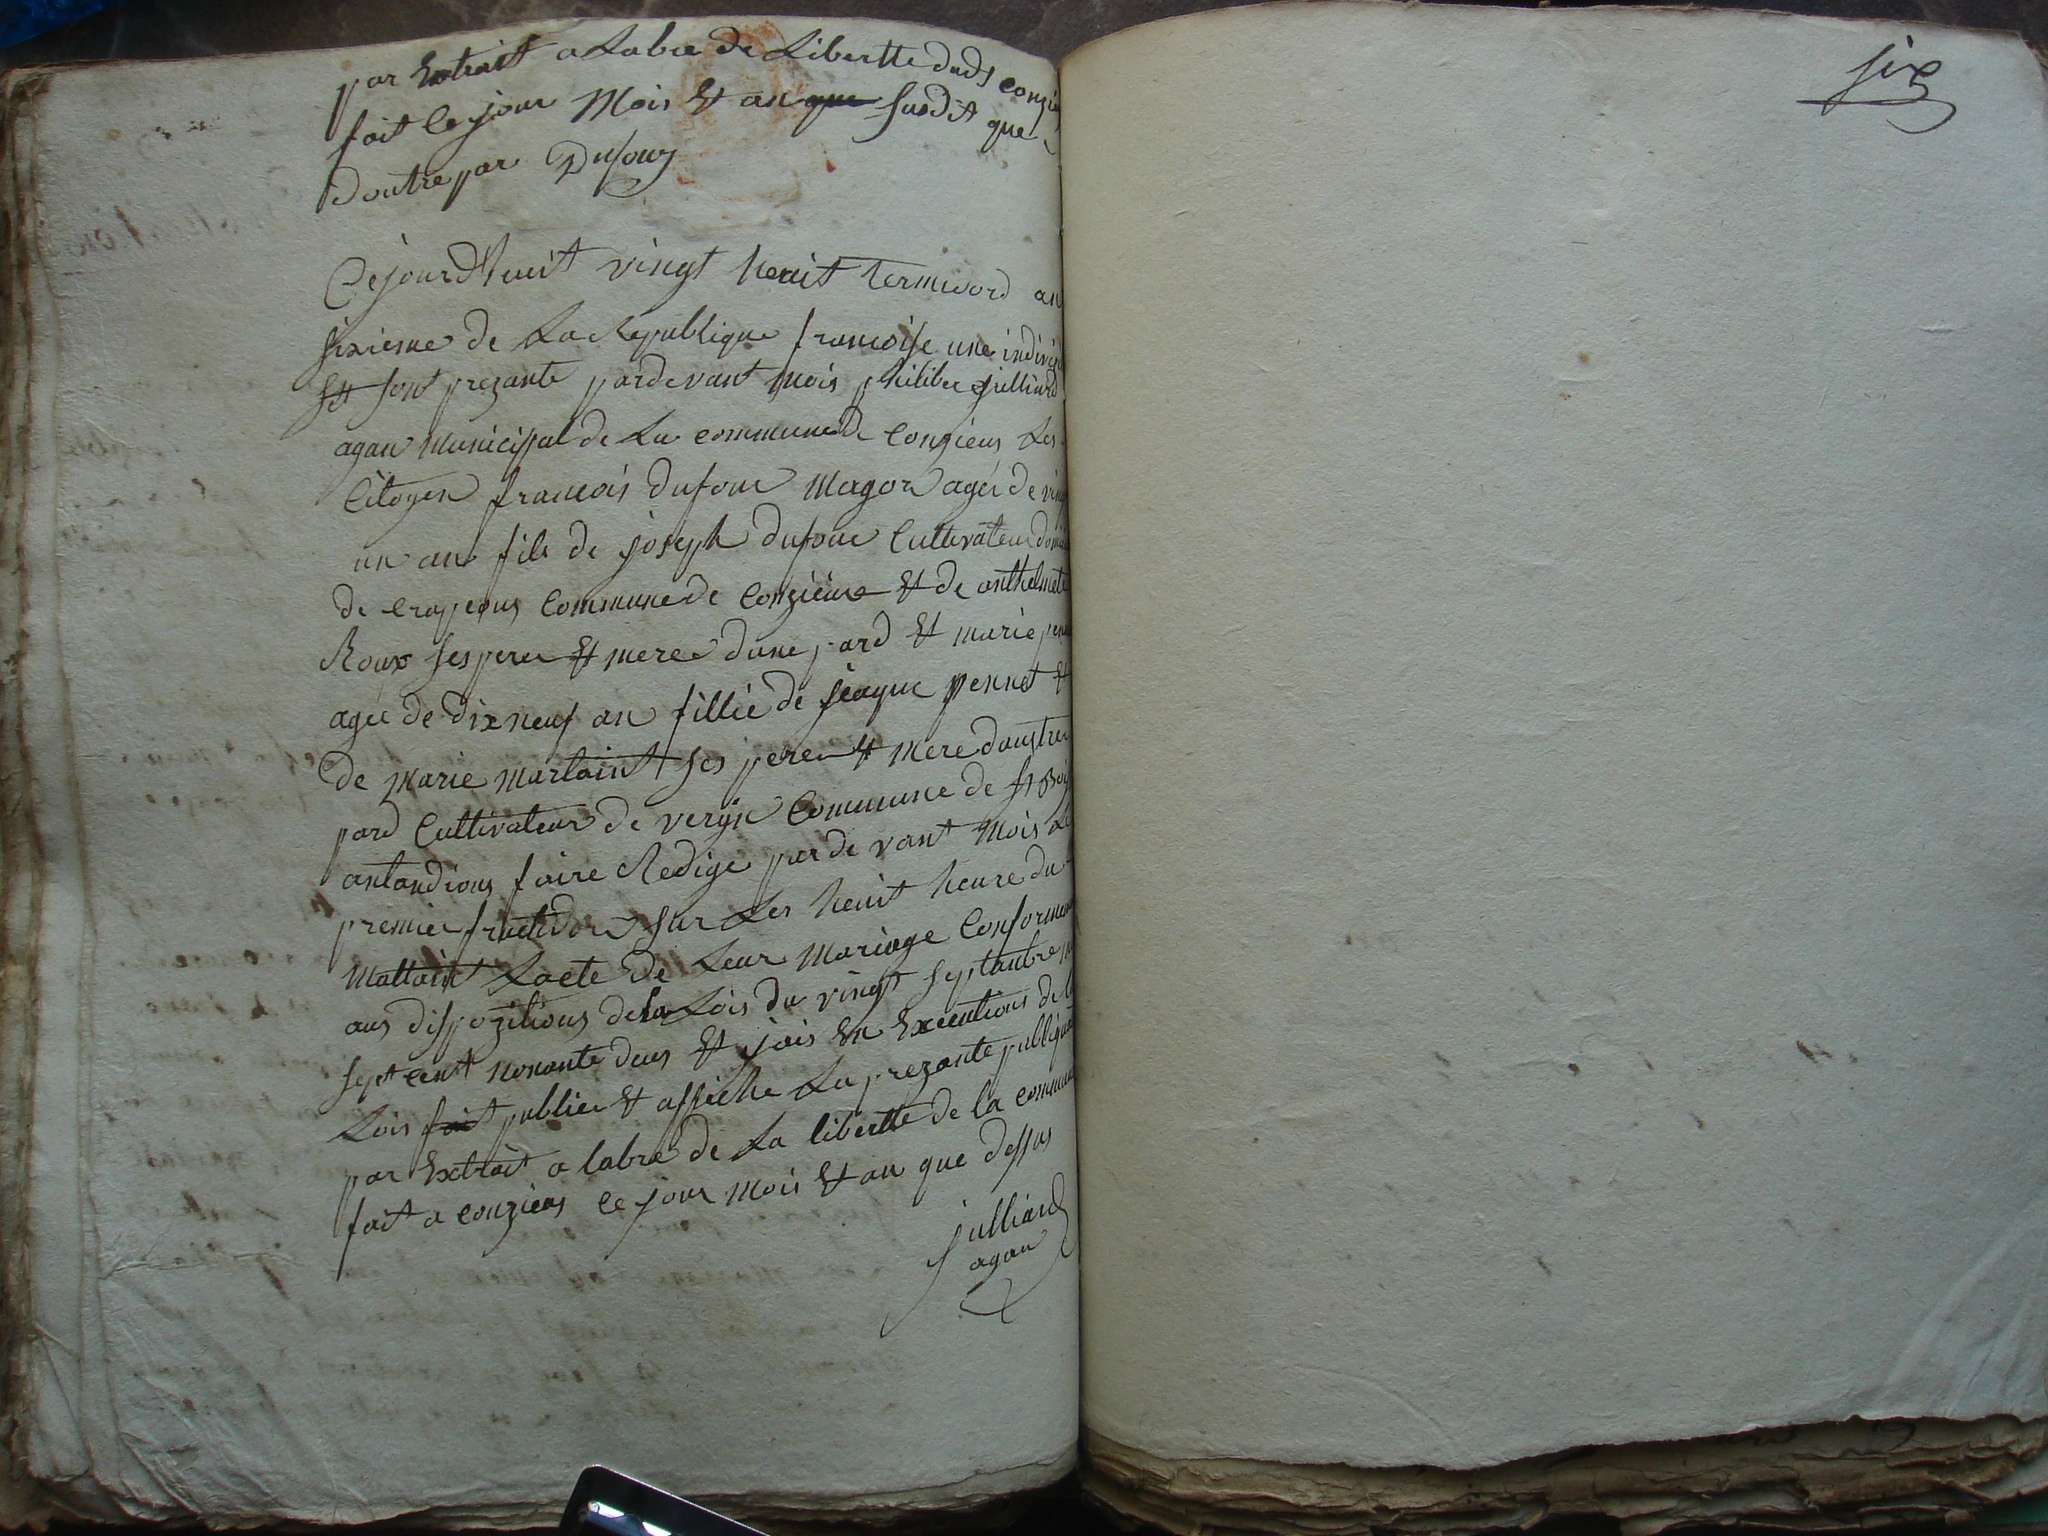 par Extrait a Labre de Libertte duds conzieu
fait le jour Mois et an que susdit que
doutre par Dufour
Cejourdhuit vingt heuit termidord an
sixiesme de La Republique francoise une indivis
se sont prezante pardevant Mois philiber Julliard
agan Municipal de La commune de Conzieus Les
Citoyen francois dufour Magor agéé de vingt
un ans fils de joseph dufour Cultivateur
de crappeous Commune de Conzieux et de anthelmete
Roux ses pere et mere dune pard et marie penet
agéé de dix neuf an fillie de Jeaque pennet et
de Marie Martaint ses pere et Mere daustre
pard Cultivateur de vergn Commune de st Boi
antandions faire Redige par de vant Mois Le
premier fructidord sur Les heuit heure du
Mattaint Lacte de Leur Mariage Conformem
aus dispozitions de la Lois du vingt septanbre
sept cent nonante deus et jais En Executions de la
Lois fait publier et affiche La prezante publiqua
par Extrait a labre de La libertte de la commune
fait a conzieus le jour Mois et an que dessus
Julliard
agan
six